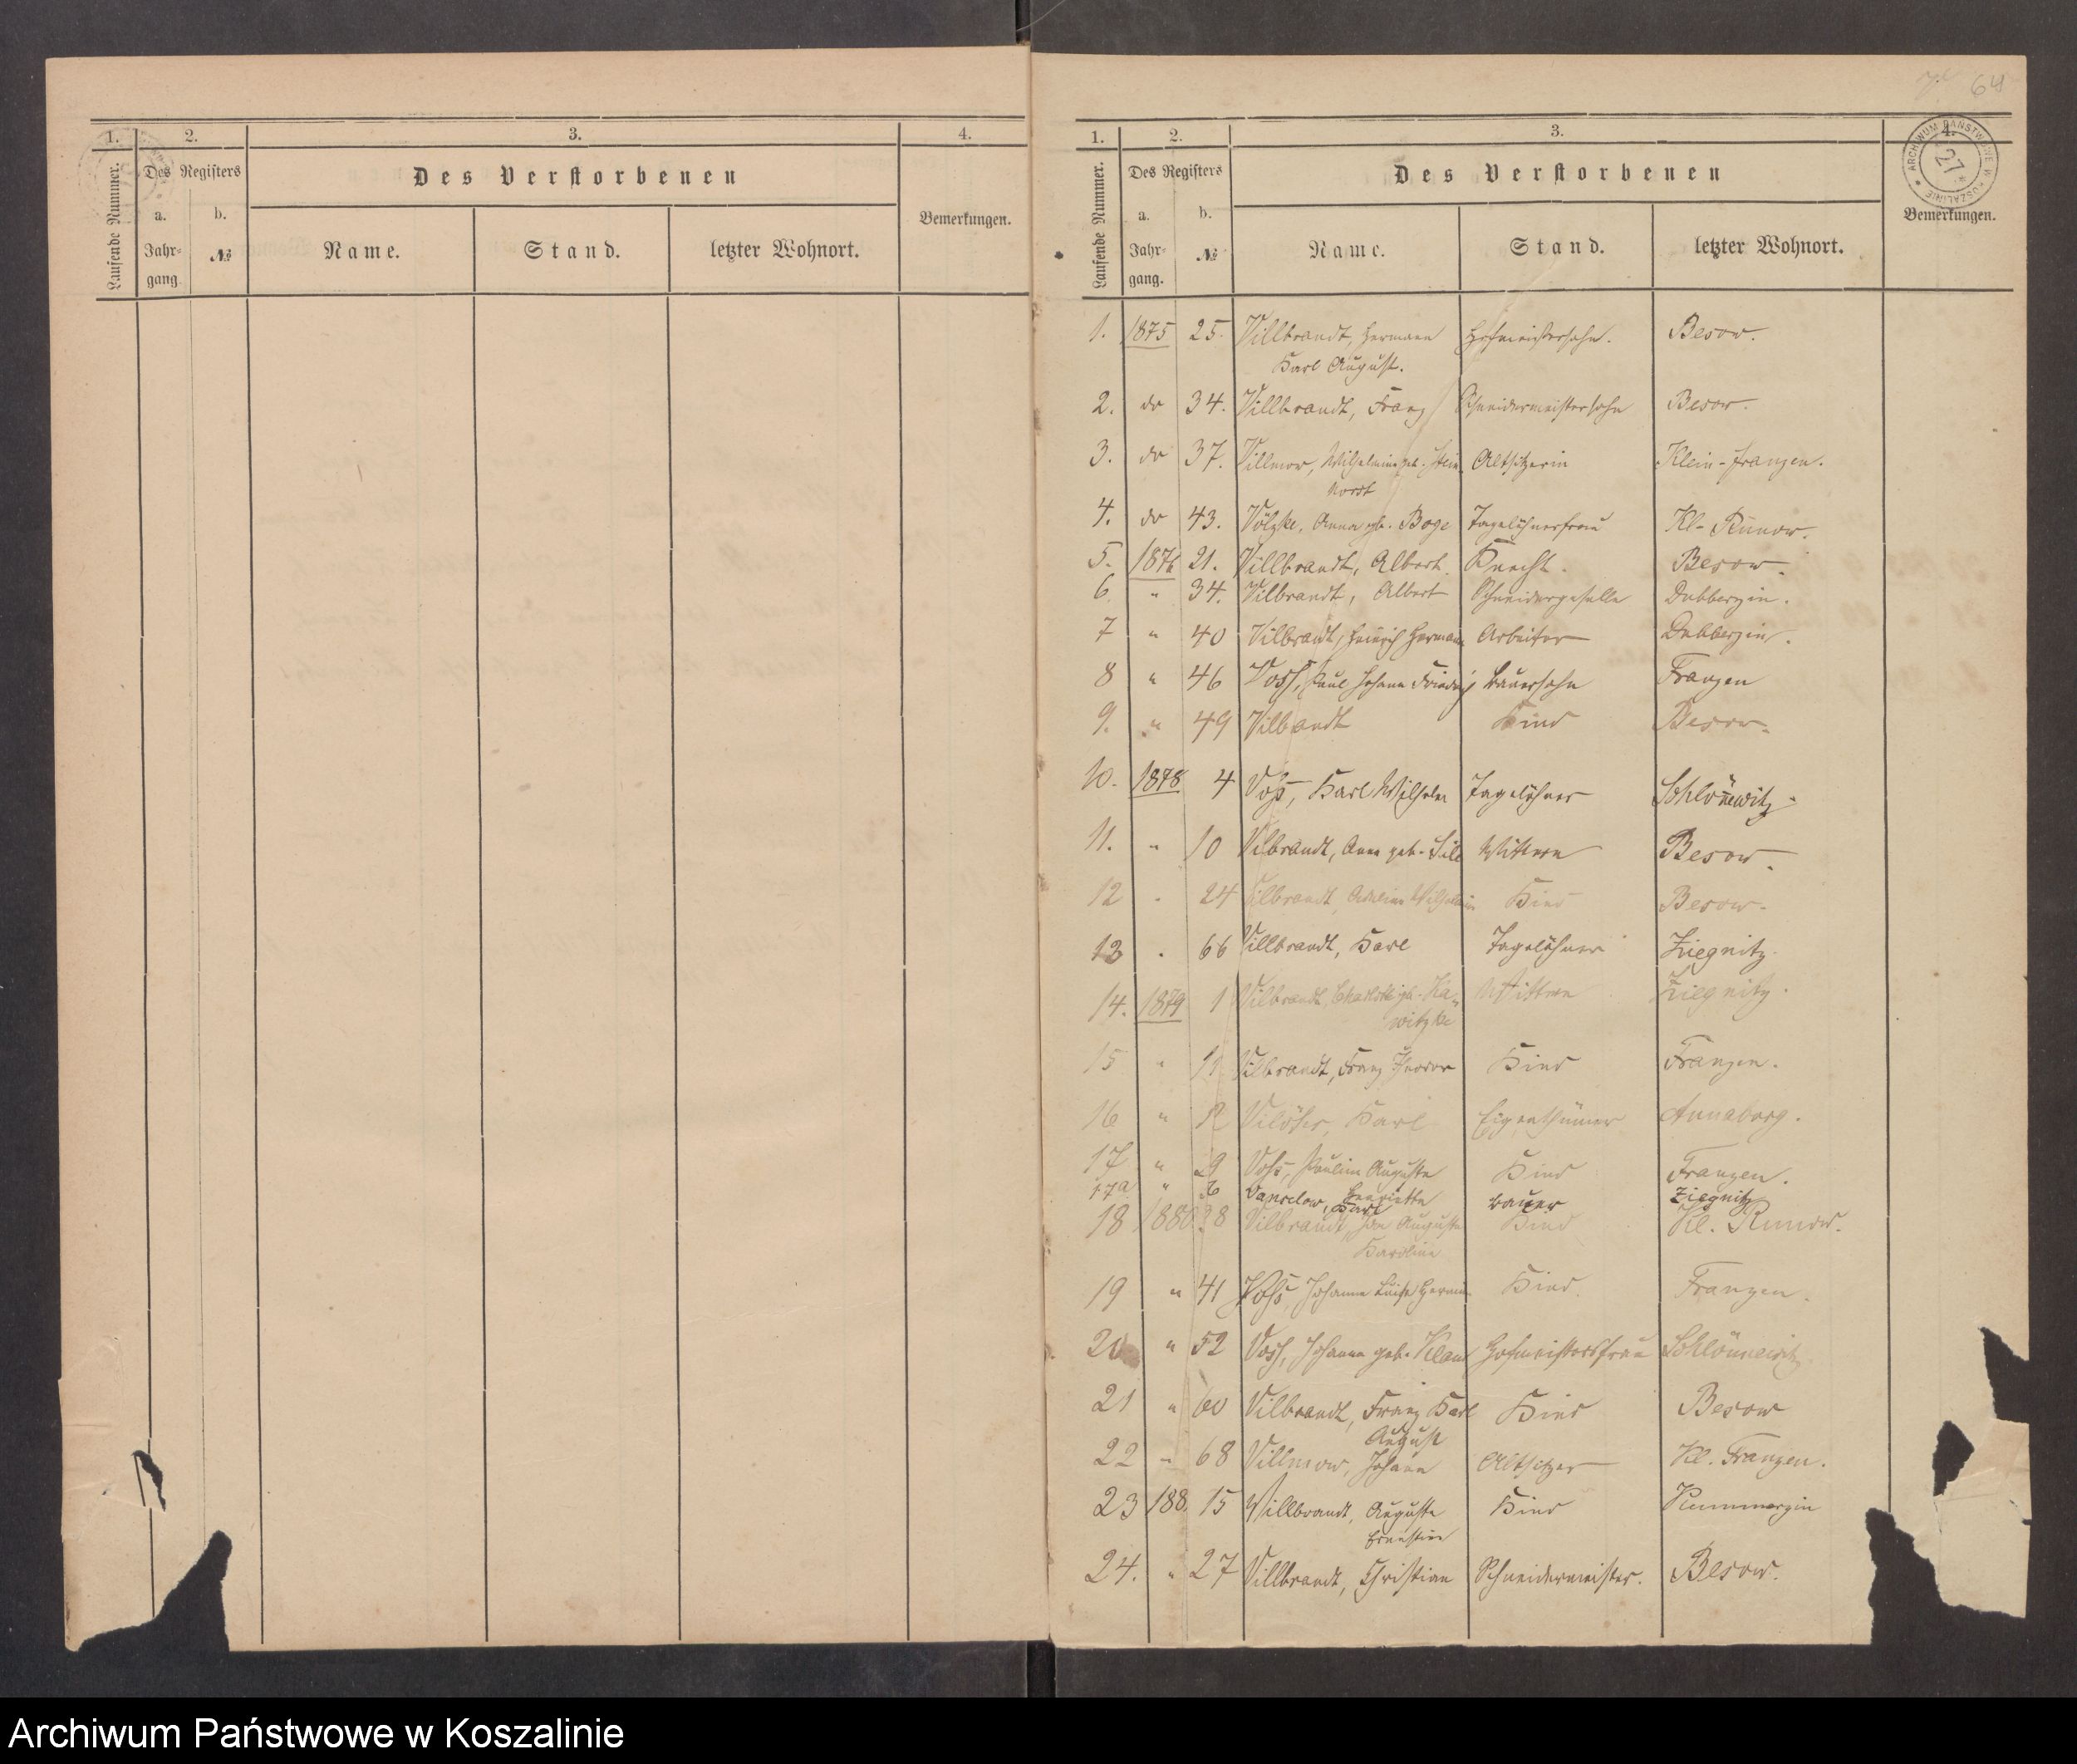 1. 2. 3. 4.
Laufende Nummer.
Des Registers
Des Verstorbenen
a. b.
Jahrgang № Name. Stand. letzter Wohnort. Bemerkungen.
64
1. 2. 3. 4.
ARCHIWUM PAŃSTWOWE W KOSZALINIE
27
Laufende Nummer.
Des Registers
Des Verstorbenen
a. b.
Jahr-
gang. № Name. Stand. letzter Wohnort. Bemerkungen.
1. 1875 25. Villbrandt, Hermann Hofmeistersohn. Besow.
Karl August.
2. do 34. Villbrandt, Franz Schneidermeistersohn Besow.
3. do 37. Villmow, Wilhelmine geb. Altsitzerin Klein-Franzen.
4. do 43. Völzke, Anna gb. Boge Tagelöhnerfrau Kl-Runow.
5. 1876 21. Villbrandt, Albert. Knecht. Besow.
6 " 34. Vilbrandt, Albert Schneidergeselle Dubberzin.
7 " 40 Vilbrandt, Heinrich Hermann Arbeiter Dubberzin.
8 " 46 Voss, Paul Johann Friedrich Bauersohn Franzen
9. " 49 Vilbrandt Kind Besow.
10. 1878 4 Voß, Karl Wilhelm Tagelöhner Schlönnewitz.
11. " 10 Vilbrandt, Anna geb. Witwe Besow.
12 " 24 Vilbrandt, Wilhelmine Kind Besow.
13 " 66 Villbrandt, Karl Tagelöhner Ziegnitz.
14. 1879 1 Vilbrandt, Charlotte gb. Ka- Wittwe Ziegnitz.
witzke
15 " 11 Vilbrandt, Franz Theodor Kind Franzen.
16 " 12 Karl Eigenthümer Annaberg.
17 " 29 Voß, Pauline Auguste Kind Franzen.
Henriette
17a " Vanselow, Karl Bauer Ziegnitz
18 1880 38 Vilbrandt, Auguste Kind Kl. Runow.
Karoline
19 " 41 Voß, Johanne Luise Hermine Kind. Franzen.
20 " 52 Voss, Johanna geb. Hofmeistersfrau Schlönnewitz.
21 " 60 Vilbrandt, Franz Karl Kind Besow
August
22 " 68 Villmow, Johann Altsitzer Kl. Franzen.
23 188 15 Villbrandt, Auguste Kind Kummerzin
Ernestine
24. " 27 Villbrandt, Christian Schneidermeister. Besow.
Archiwum Państwowe w Koszalinie